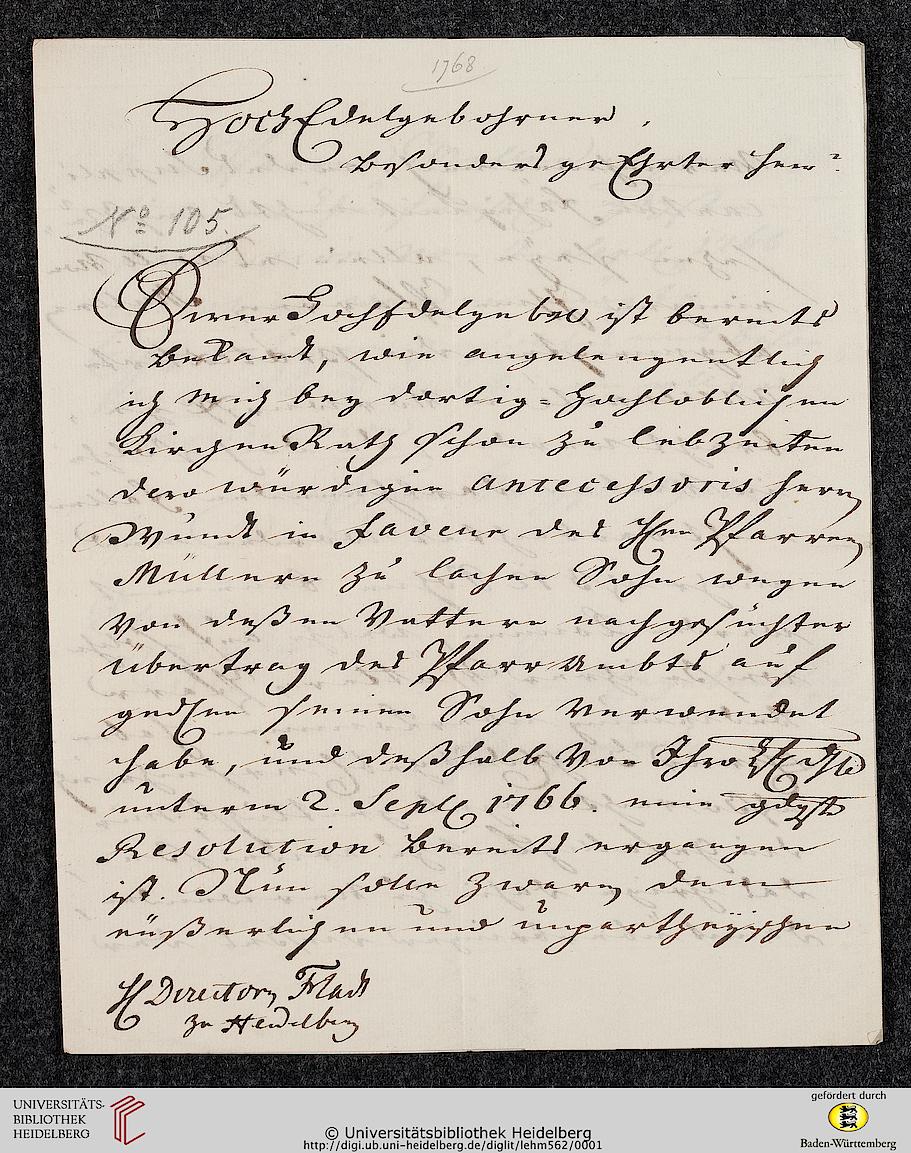 1768
HochEdelgebohrner,
besonders geEhrter Herr
No 105.
Eiwer HochEdelgebo ist bereits
bekandt, wie angelengentlich
ich mich bey dortig-Hochloblichen
KirchenRath schon zu lebzeiten
dero würdigen Antecessoris Herrn
Wundt in faveur des Hen Pfarren
Müllern zu lachen Sohn wegen
von deßen Vattern nachgesuchter
Übertrag des Pfarr Ambts auf
seinen Sohn verwendet
habe, und deßhalb von Ihro
unterm 2. Sept 1766. eine gdgste
Resolution bereits ergangen
ist. Nun solle zwarn denen
eüßerlichen und unpartheyischen
H Directorn Fladt
zu Heidelberg
UNIVERSITÄTS-
BIBLIOTHEK
HEIDELBERG
© Universitätsbibliothek Heidelberg
http://digi.ub.uni-heidelberg.de/diglit/lehm562/0001
gefördert durch
Baden-Württemberg